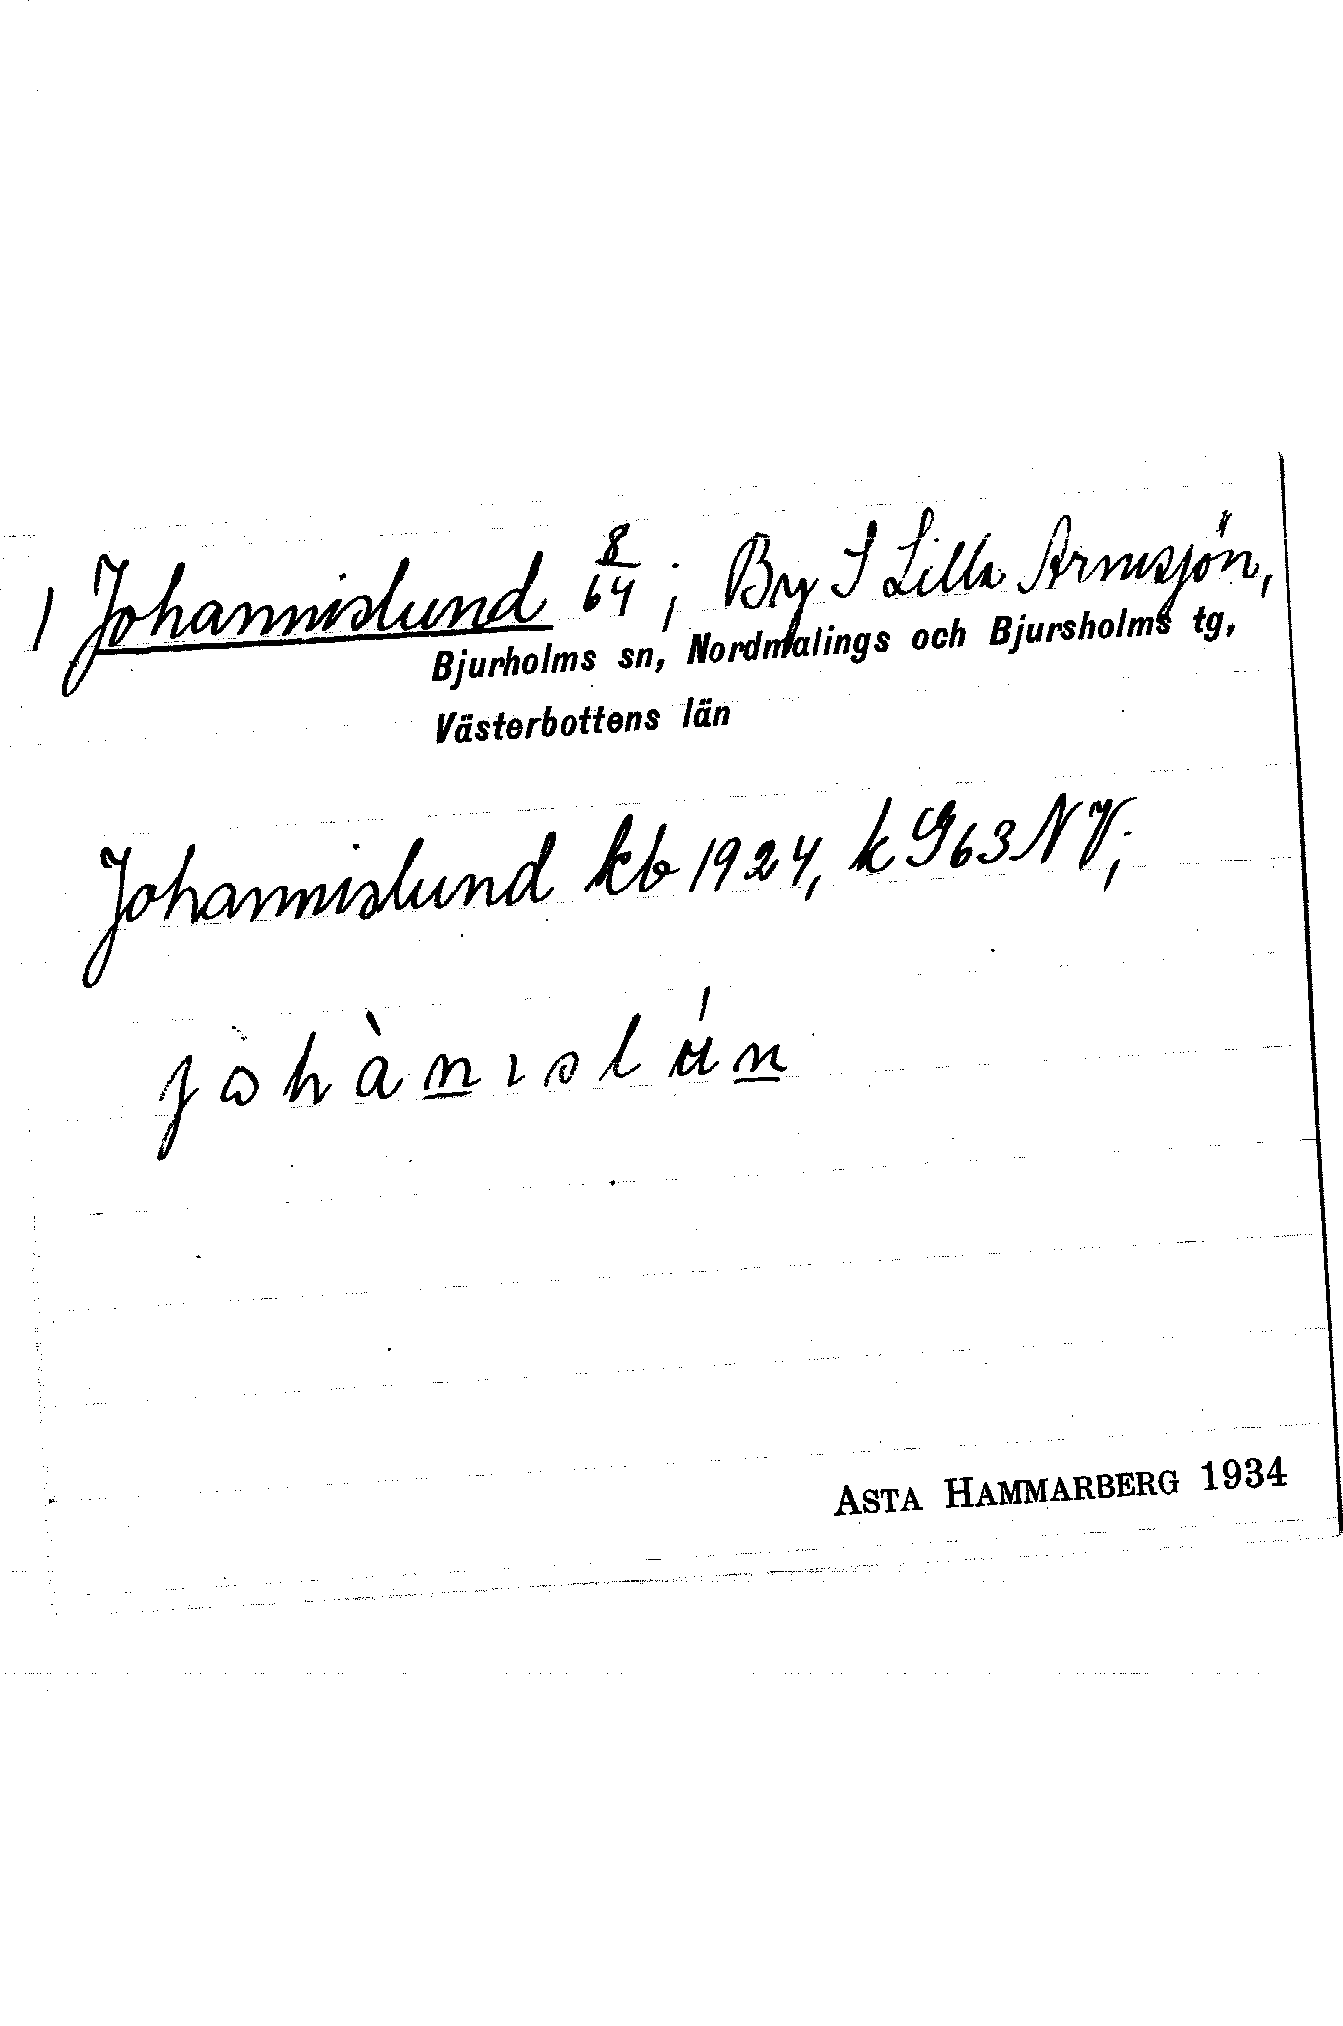 1 Johannislund 8/64; By S Lilla Armsjön,
Bjurholms sn, Nordmalings och Bjursholms tg,
Västerbottens län
Johannislund kb 1924, k G63NV;
johànıslún
ASTA HAMMARBERG 1934